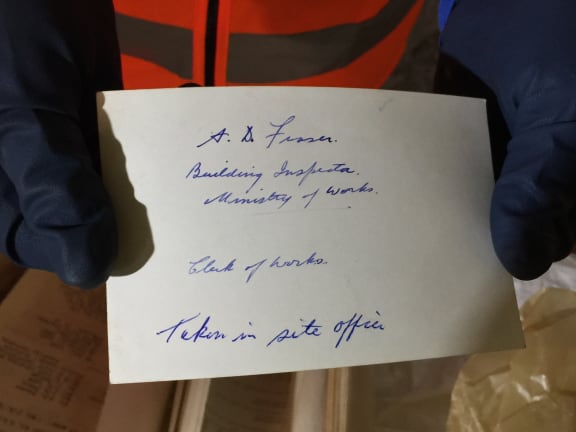 A. D. Fraser.
Building Inspector.
Ministry of Works.
Clerk of Works.
Taken in site office